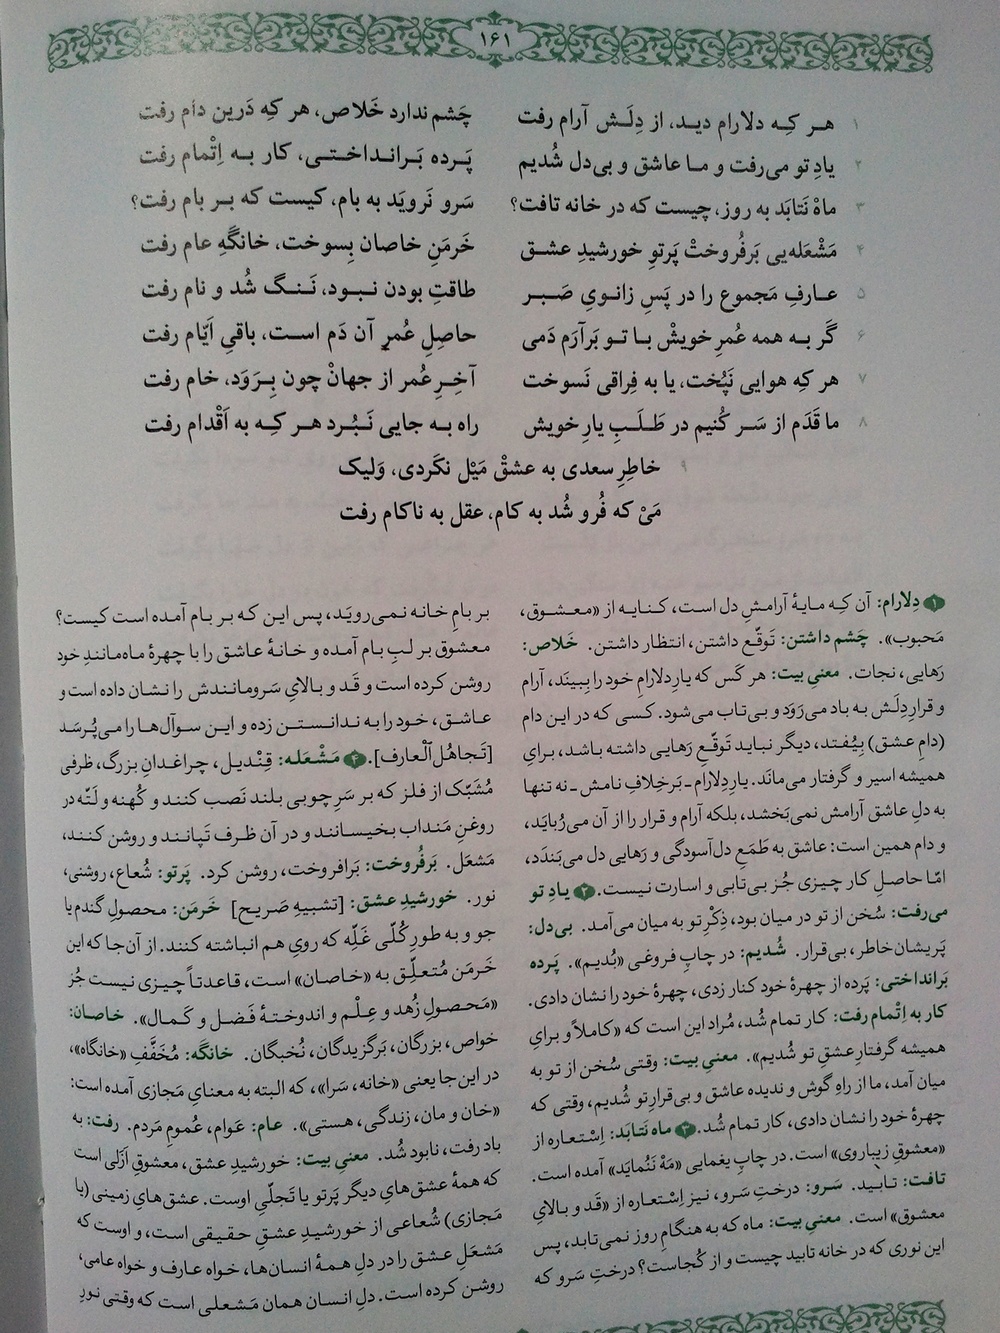 ۱۶۱
۱ هر کِه دلارام دید، از دِلَش آرام رفت چَشم ندارد خَلاص، هر کِه دَرین دام رفت
۲ یادِ تو می‌رفت و ما عاشق و بی‌دل شُدیم پَرده بَرانداختی، کار به اِتْمام رفت
۳ ماهْ نَتابَد به روز، چیست که در خانه تافت؟ سَرو نَرویَد به بام، کیست که بر بام رفت؟
۴ مَشْعَله‌یی بَرفُروختْ پَرتوِ خورشیدِ عشق خَرمَنِ خاصان بِسوخت، خانگَهِ عام رفت
۵ عارفِ مَجموع را در پَسِ زانویِ صَبر طاقتِ بودن نبود، نَنگ شُد و نام رفت
۶ گَر به همه عُمرِ خویشْ با تو بَرآرَم دَمی حاصِلِ عُمر آن دَم است، باقیِ اَیّام رفت
۷ هر کِه هوایی نَپُخت، یا به فِراقی نَسوخت آخِرِ عُمر از جهانْ چون بِرَوَد، خام رفت
۸ ما قَدَم از سَر کُنیم در طَلَبِ یارِ خویش راه به جایی نَبُرد هر کِه به اَقْدام رفت
۹ خاطِرِ سعدی به عشقْ مَیْل نکَردی، وَلیک
مَیْ که فُرو شُد به کام، عقل به ناکام رفت
۱ دِلارام: آن کِه مایهٔ آرامشِ دل است، کنایه از «معشوق،
محبوب». چَشم داشتن: تَوقّع داشتن، انتظار داشتن. خَلاص:
رَهایی، نجات. معنیِ بیت: هر کَس که یارِ دلارامِ خود را بِبینَد، آرام
و قرارِ دِلَش به باد می‌رَوَد و بی‌تاب می‌شود. کسی که در این دام
(دامِ عشق) بِیُفتد، دیگر نباید تَوقّعِ رَهایی داشته باشد، برایِ
همیشه اسیر و گرفتار می‌مانَد. یارِ دِلارام ـ بَرخِلافِ نامش ـ نه تنها
به دلِ عاشق آرامش نمی‌بَخشد، بلکه آرام و قرار را از آن می‌رُبایَد،
و دام همین است: عاشق به طَمَعِ دل‌آسودگی و رَهایی دل می‌بَندَد،
امّا حاصلِ کار چیزی جُز بی‌تابی و اسارت نیست. ۲ یادِ تو
می‌رفت: سُخن از تو در میان بود، ذِکْرِ تو به میان می‌آمد. بی‌دل:
پَریشان‌خاطر، بی‌قرار. شُدیم: در چاپِ فروغی «بُدیم». پَرده
بَرانداختی: پَرده از چهرهٔ خود کنار زدی، چهرهٔ خود را نشان دادی.
کار به اِتْمام رفت: کار تمام شُد، مُراد این است که «کاملاً و برایِ
همیشه گرفتارِ عشقِ تو شُدیم». معنیِ بیت: وقتی سُخن از تو به
میان آمد، ما از راهِ گوش و ندیده عاشق و بی‌قرارِ تو شُدیم، وقتی که
چهرهٔ خود را نشان دادی، کار تمام شُد. ۳ ماه نَتابَد: اِسْتعاره از
«معشوقِ زیباروی» است. در چاپِ یغمایی «مَهْ نَنْمایَد» آمده است.
تافت: تابید. سَرو: درختِ سَرو، نیز اِسْتعاره از «قَد و بالایِ
معشوق» است. معنیِ بیت: ماه که به هنگامِ روز نمی‌تابد، پس
این نوری که در خانه تابید چیست و از کُجاست؟ درختِ سَرو که
بر بامِ خانه نمی‌رویَد، پس این که بر بام آمده است کیست؟
معشوق بر لبِ بام آمده و خانهٔ عاشق را با چهرهٔ ماه‌مانندِ خود
روشن کرده است و قَد و بالایِ سَرومانندش را نشان داده است و
عاشق، خود را به ندانستن زده و این سوآل‌ها را می‌پُرسَد
[تَجاهُل‌اَلْعارف]. ۴ مَشْعَله: قِنْدیل، چراغدانِ بزرگ، ظرفی
مُشَبّک از فلز که بر سَرِ چوبی بلند نَصب کنند و کُهنه و لَتّه در
روغنِ مَنداب بخیسانند و در آن ظرف تَپانند و روشن کنند،
مَشعَل. بَرفُروخت: بَرافروخت، روشن کرد. پَرتو: شُعاع، روشنی،
نور. خورشیدِ عشق: [تشبیهِ صَریح] خَرمَن: محصولِ گندم یا
جو و به طورِ کُلّی غَلّه که رویِ هم انباشته کنند. از آن‌جا که این
خَرمَن مُتعلّق به «خاصان» است، قاعدتاً چیزی نیست جُز
«مَحصولِ زُهد و عِلْم و اندوختهٔ فَضل و کَمال». خاصان:
خواص، بزرگان، بَرگزیدگان، نُخبگان. خانگَه: مُخَفَّفِ «خانگاه»،
در این‌جا یعنی «خانه، سَرا»، که البته به معنایِ مَجازی آمده است:
«خان و مان، زندگی، هستی». عام: عَوام، عُمومِ مَردم. رفت: به
باد رفت، نابود شُد. معنیِ بیت: خورشیدِ عشق، معشوقِ اَزَلی است
که همهٔ عشق‌هایِ دیگر پَرتو یا تَجلّیِ اوست. عشق‌هایِ زمینی (یا
مَجازی) شُعاعی از خورشیدِ عشقِ حقیقی است، و اوست که
مَشعَلِ عشق را در دلِ همهٔ انسان‌ها، خواه عارف و خواه عامی،
روشن کرده است. دلِ انسان همان مَشعلی است که وقتی نورِ